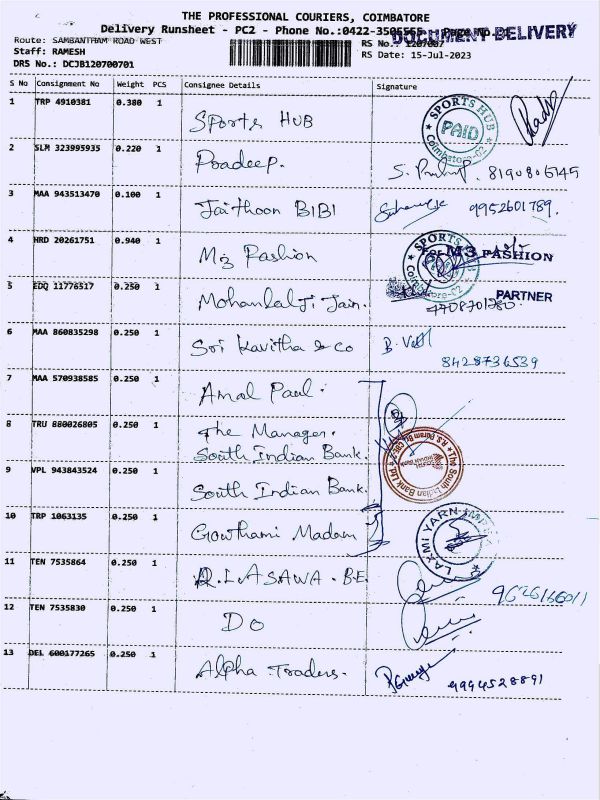 THE PROFESSIONAL COURIERS, COIMBATORE
Delivery Runsheet - PC2 - Phone No.:0422-3505565 - Page No.
DOCUMENT DELIVERY
Route: SAMBANTHAM ROAD WEST
RS No.: 1207007
Staff: RAMESH
RS Date: 15-Jul-2023
DRS No.: DCJB120700701
S No Consignment No Weight PCS Consignee Details Signature
1 TRP 4910381 0.380 1 Sports HUB
SPORTS HUB PAID Coimbatore-02
2 SLM 323995935 0.220 1 Pradeep. 8190806145
3 MAA 943513470 0.100 1 Jaithoon BIBI 9952601789.
4 HRD 20261751 0.940 1 M3 Fashion
SPORTS Coimbatore-02
For M3 FASHION
PARTNER
5 EDQ 11776517 0.250 1 Mohanlal Ji Jain.
6 MAA 860835298 0.250 1 Sri Kavitha & Co 8428736539
7 MAA 570938585 0.250 1 Amal Paul.
8 TRU 880026805 0.250 1 The Manager.
South Indian Bank.
The South Indian Bank Ltd
9 VPL 943843524 0.250 1 South Indian Bank.
10 TRP 1063135 0.250 1 Gowthami Madam
LAXMI YARN
11 TEN 7535864 0.250 1 R.L ASAWA. B.E.
12 TEN 7535830 0.250 1 DO
13 DEL 600177265 0.250 1 Alpha Traders. 9994528891